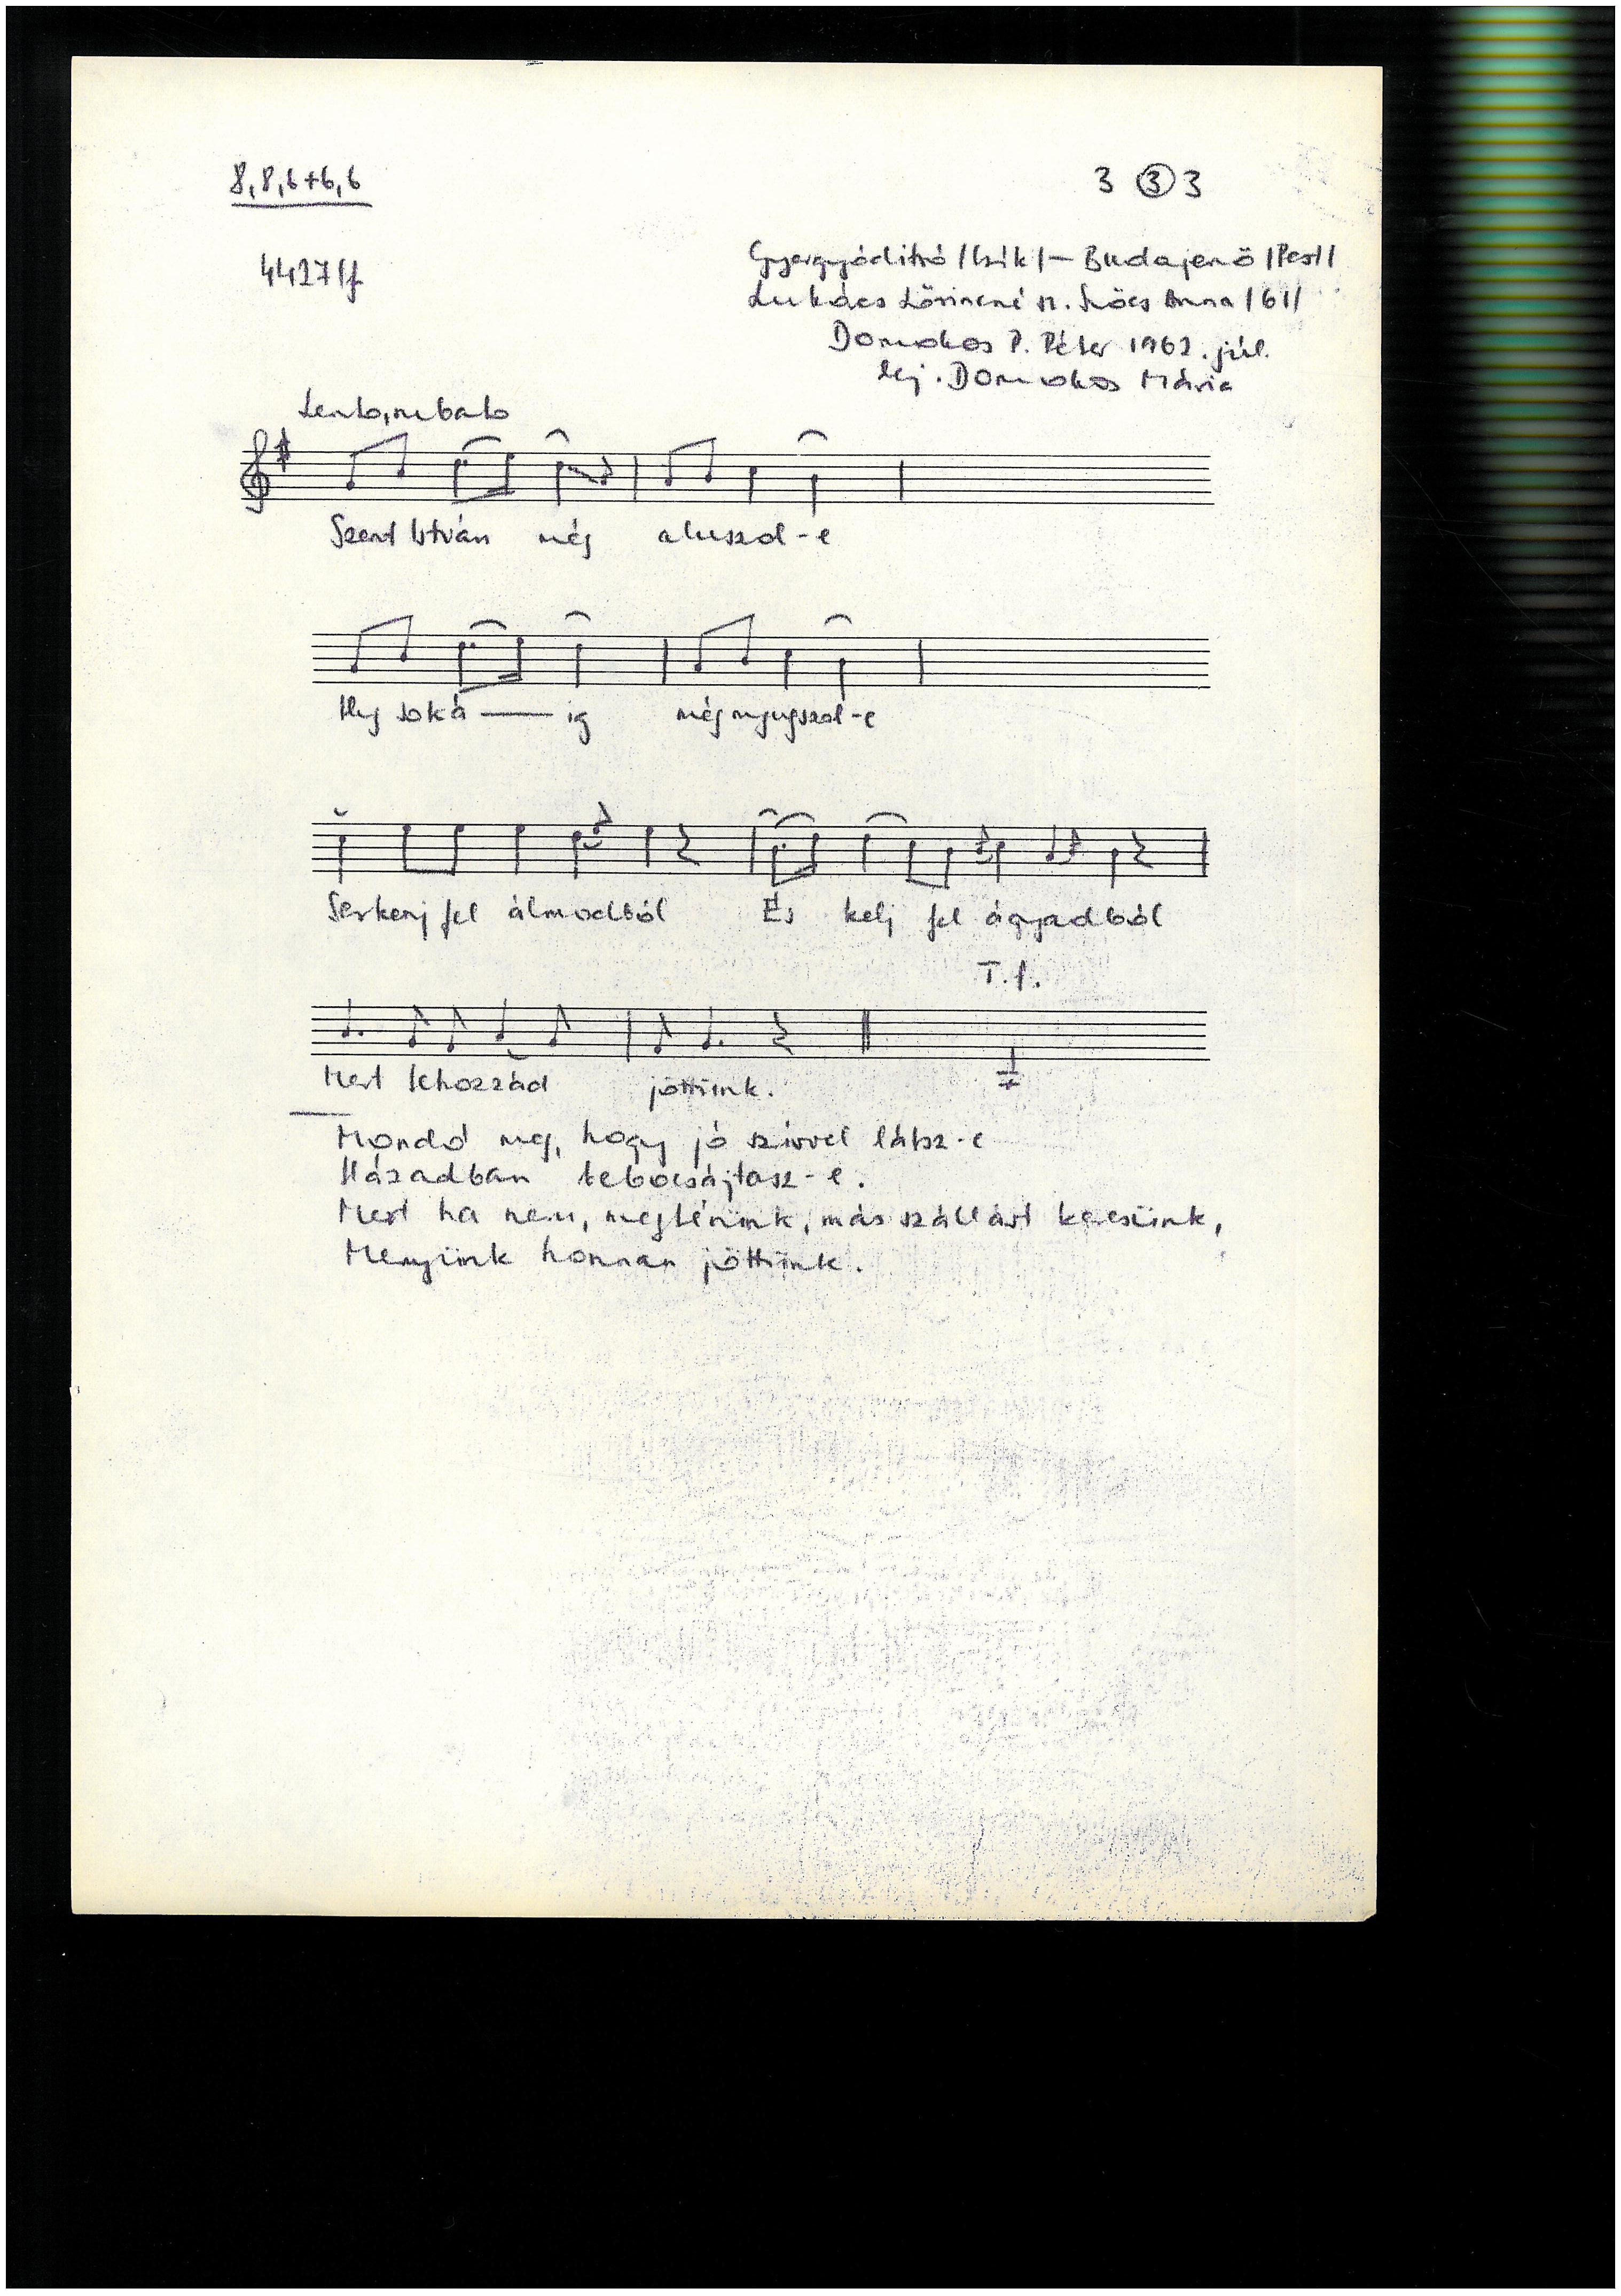 8,8,6+6,6
3 3 3
4427/f
Gyergyóditró /Csík/ — Budajenő /Pest/
Lukács Lőrincné sz. Szőcs Anna /61/
Domokos P. Péter 1962. júl.
lej. Domokos Mária
Lento, rubato
Szent István még aluszol-e
Ily soká — ig még nyugszol-e
Serkenj fel álmodból És kelj fel ágyadból
T.f.
Mert tehozzád jöttünk.
Mondd meg, hogy jó szívvel látsz-e
Házadban bebocsájtasz-e.
Mert ha nem, megtérünk, más szállást keresünk,
Menyünk honnan jöttünk.